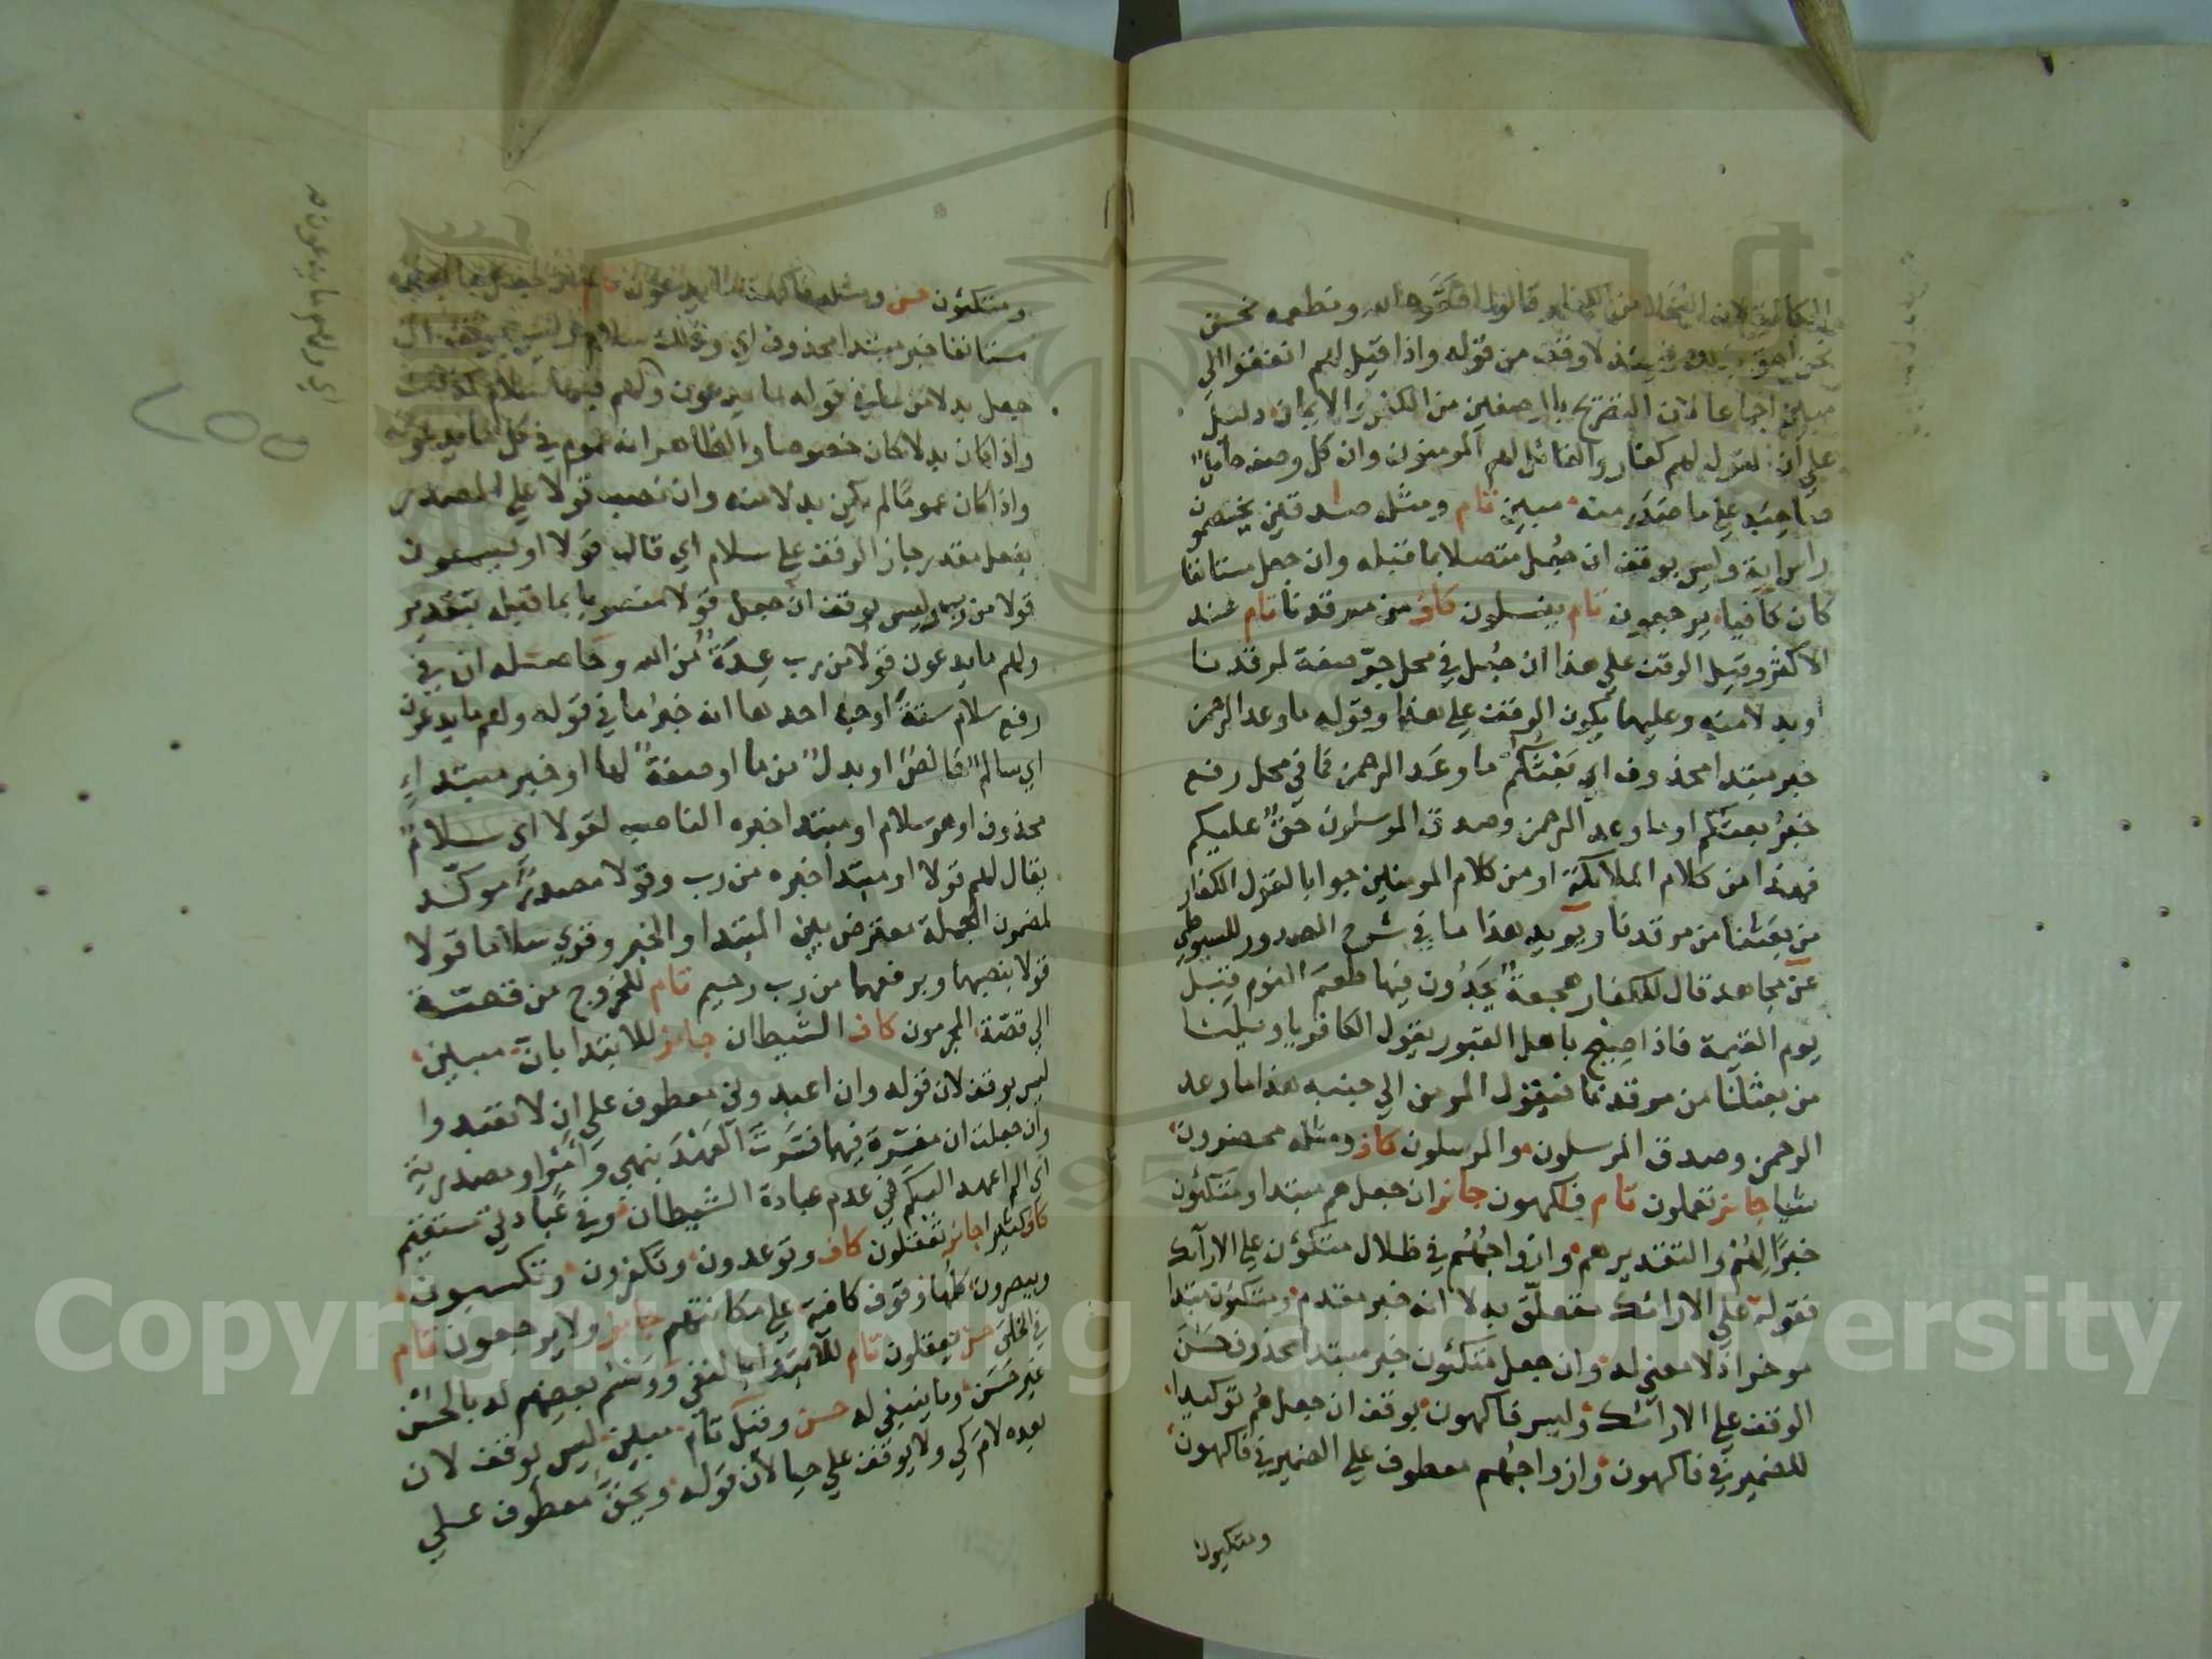 من الكفار قالوا افقره الله ونطعمه نحن
نحن احق بذلك فحينئذ لا وقف من قوله واذا قيل لهم انفقوا الي
مبين اجماعا لان التصريح بالوصفين من الكفر والايمان دليل
علي ان المقول لهم كفار والقائل لهم المومنون وان كل وصف حامل
صاحبه علي ما صدر منه مبين تام ومثله صادقين يخصمون
راس اية وليس بوقف ان جعل متصلا بما قبله وان جعل مستانفا
كان كافيا يرجعون تام ينسلون كاف من مرقدنا تام عند
الاكثر وقيل الوقف علي هذا ان جعل في محل جر صفة لمرقدنا
او بدلا منه وعليهما يكون الوقف علي هذا وقوله ما وعد الرحمن
خبر مبتدا محذوف اي بعثكم ما وعد الرحمن فما في محل رفع
خبر بعثكم او ما وعد الرحمن وصدق المرسلون حق عليكم
فهذا من كلام الملائكة او من كلام المومنين جوابا لقول الكفار
من بعثنا من مرقدنا ويويد هذا ما في شرح الصدور للسيوطي
عن مجاهد قال للكفار هجعة يجدون فيها طعم النوم قبل
يوم القيمة فاذا صيح باهل القبور يقول الكافر يا ويلنا
من بعثنا من مرقدنا فيقول المومن الي جنبه هذا ما وعد
الرحمن وصدق المرسلون والمرسلون كاف ومثله محضرون
شيا جائز تعملون تام فاكهون جائز ان جعل هم مبتدا ومتكئون
خبرا لهم والتقدير هم وازواجهم في ظلال متكئون علي الارآئك
فقوله علي الارائك متعلق به لا انه خبر مقدم ومتكئون مبتدا
موخر اذ لا معني له وان جعل متكئون خبر مبتدا محذوف حسن
الوقف علي الارآئك وليس فاكهون بوقف ان جعل هم توكيدا
للضمير في فاكهون وازواجهم معطوف علي الضمير في فاكهون
ومتكيون
ومتكئون حسن ومثله فاكهة ما يدعون تام
مستانفا خبر مبتدا محذوف اي وذلك سلام وليس بوقف ان
جعل بدلا من ما في قوله ما يدعون ولهم فيها سلام كذلك
واذا كان بدلا كان خصوصا والظاهر انه عموم في كل ما يدعونه
واذا كان عموما لم يكن بدلا منه وان نصب قولا علي المصدر
بفعل مقدر جاز الوقف علي سلام اي قالوا قولا او يسمعون
قولا من رب وليس بوقف ان جعل قولا منصوبا بما قبله بتقدير
ولهم ما يدعون قولا من رب عدة من الله وحاصله ان في
رفع سلام ستة اوجه احدها انه خبر ما في قوله ولهم ما يدعون
اي سالم خالص او بدل من ما او صفة لها او خبر مبتداء
محذوف او هو سلام او مبتدا خبره الناصب لقولا اي سلام
يقال لهم قولا او مبتدا خبره من رب وقولا مصدر موكد
لمضمون الجملة معترض بين المبتدا والخبر وقري سلاما قولا
قولا بنصبهما وبرفعهما من رب رحيم تام للخروج من قصة
الي قصة المجرمون كاف الشيطان جائز للابتدا بان مبين
ليس بوقف لان قوله وان اعبدوني معطوف علي ان لا تعبدوا
وان جعلت ان مفسرة فيهما فسرت العهد بنهي وامر او مصدرية
اي الم اعهد اليكم في عدم عبادة الشيطان وفي عبادتي مستقيم
كاف كثيرا جائز تعقلون كاف وتوعدون وتكفرون وتكسبون
ويبصرون كلها وقوف كافية علي مكانتهم جائز ولا يرجعون تام
في الخلق حسن يعقلون تام للابتدا بالنفي ووسم بعضهم له بالحسن
غير حسن وما ينبغي له حسن وقيل تام مبين ليس بوقف لان
بعده لام كي ولا يوقف علي حيا لان قوله ويحق معطوف علي